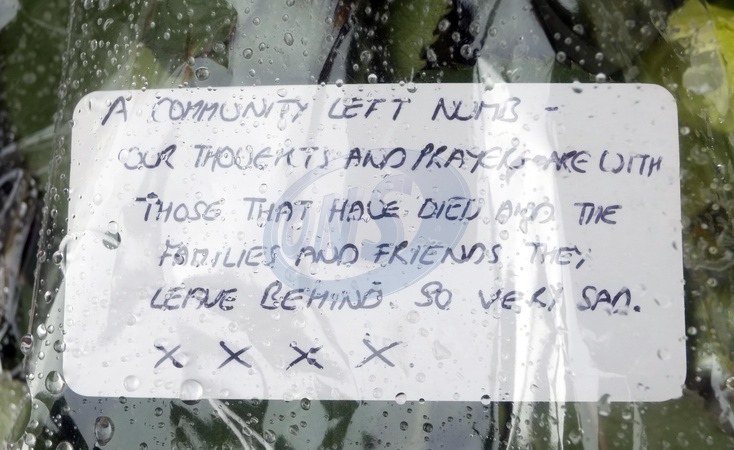 A COMMUNITY LEFT NUMB -
OUR THOUGHTS AND PRAYERS ARE WITH
THOSE THAT HAVE DIED AND THE
FAMILIES AND FRIENDS THEY
LEAVE BEHIND SO VERY SAD.
X X X X